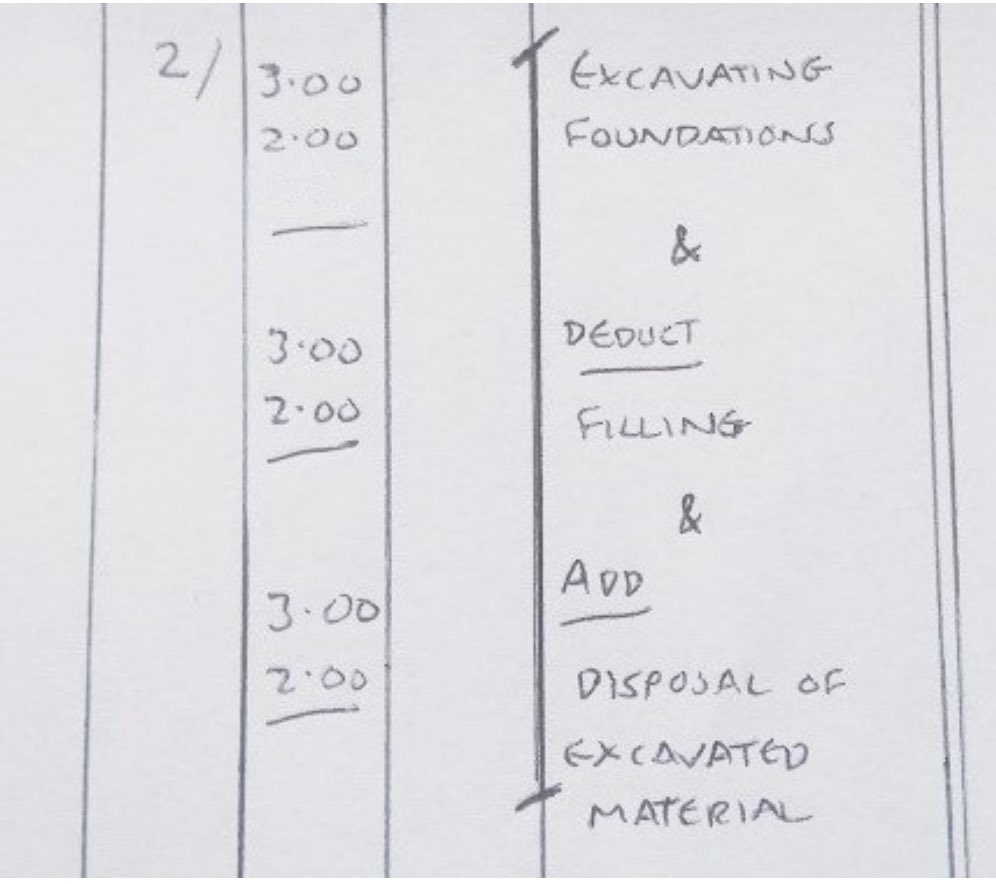 2/ 3.00 EXCAVATING
2.00 FOUNDATIONS
&
3.00 DEDUCT
2.00 FILLING
&
ADD
3.00
2.00 DISPOSAL OF
EXCAVATED
MATERIAL